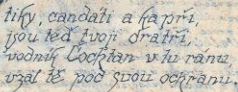 tiky, candáti a kapři,
jsou teď tvoji bratři,
vodník Čochtan v tu ránu,
vzal tě pod svou ochranu.